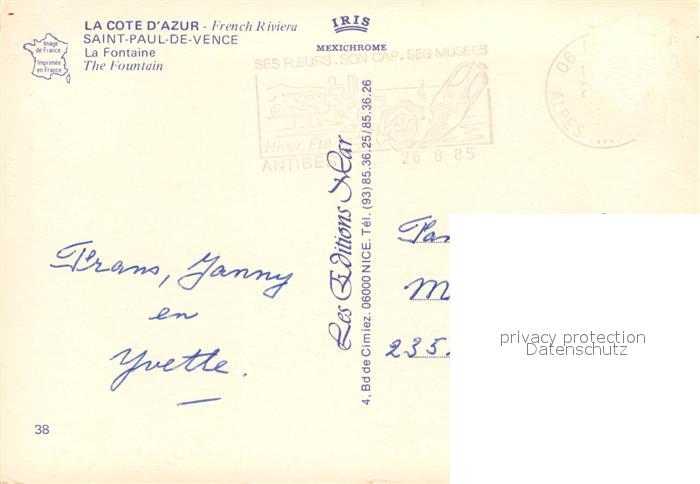 LA COTE D'AZUR - French Riviera
SAINT-PAUL-DE-VENCE
La Fontaine
The Fountain
Image de France
Imprimée en France
IRIS
MEXICHROME
SES FLEURS.SON CAP.SES MUSEES
Hiver, Eté
ANTIBES
26 8 85
06
ALPES
Les Editions Mar
4, Bd de Cimiez. 06000 NICE. Tél. (93) 85.36.25/85.36.26
Frans, Janny
en
Yvette.
Fam
M
235
privacy protection
Datenschutz
38